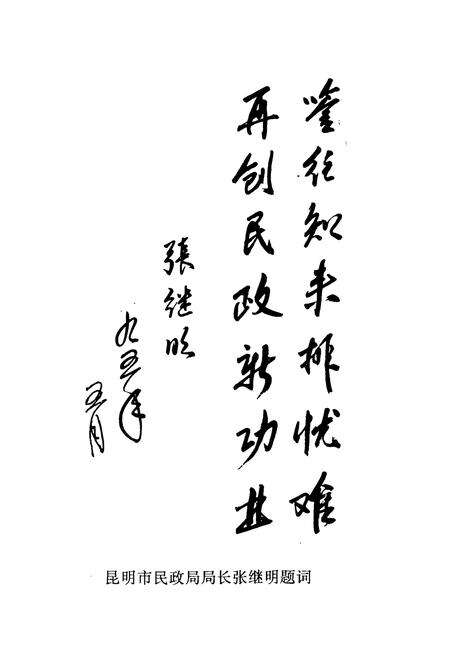 鉴往知来排忧难
再创民政新功业
張继明
九五年
五月
昆明市民政局局长张继明题词